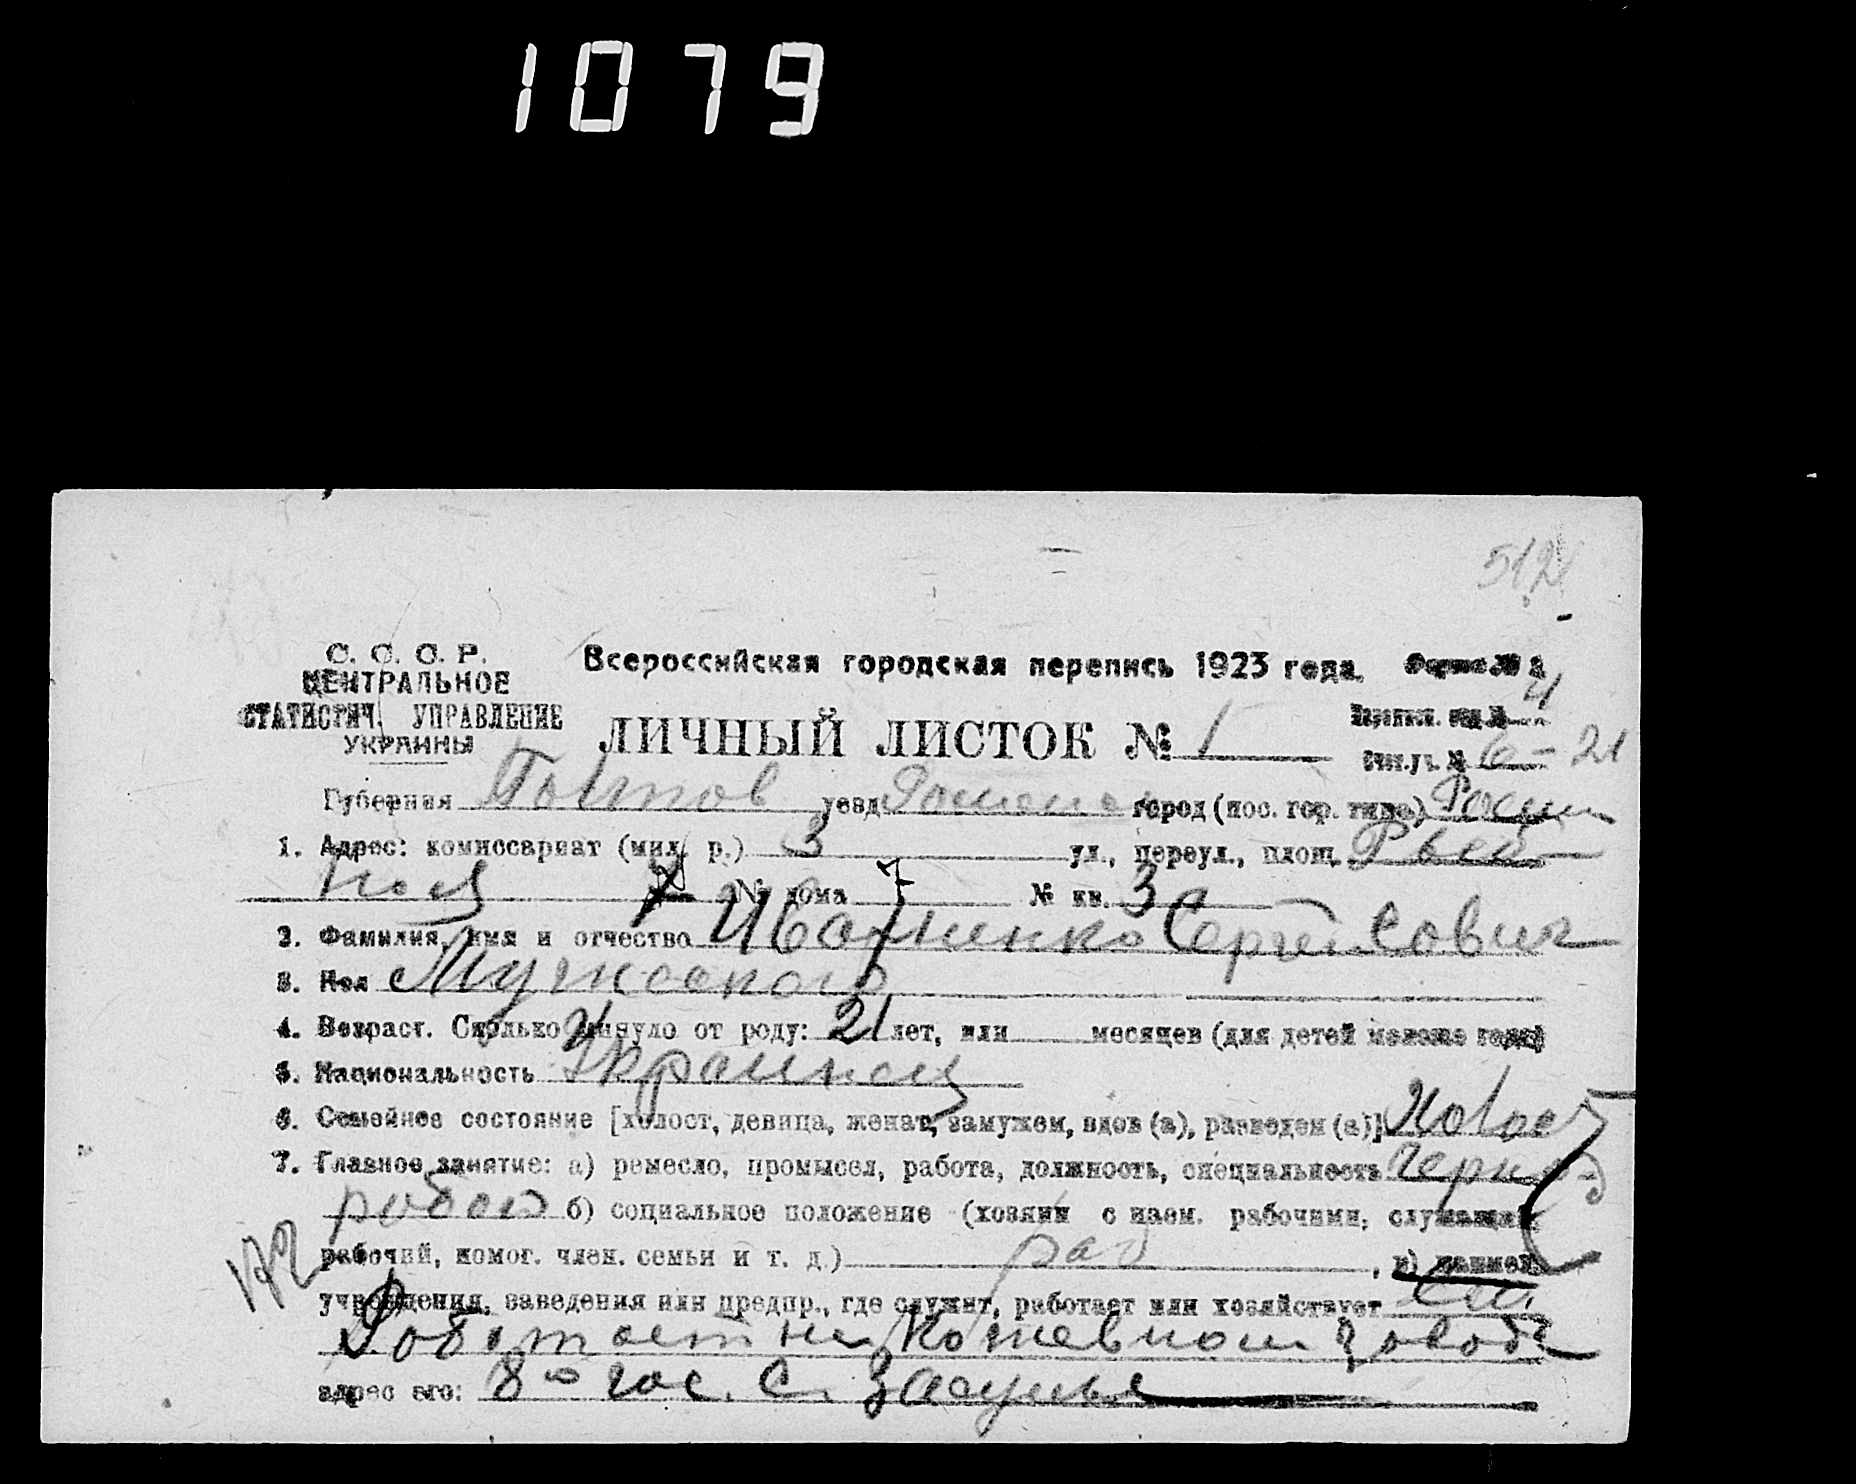 1079
512
С. С. С. Р.
ЦЕНТРАЛЬНОЕ
СТАТИСТИЧ. УПРАВЛЕНИЕ
УКРАИНЫ
Всероссийская городская перепись 1923 года.
ЛИЧНЫЙ ЛИСТОК № 1
4
Счет. уч. № 6 - 21
Губерния Полтов уезд Роменс город (пос. гор. типа) Ромни
1. Адрес: комиссариат (мил. р.) 3 ул., переул., площ.
№ дома 7 № кв. 3
2. Фамилия, имя и отчество Иваненко
3. Пол Мужского
4. Возраст. Сколько минуло от роду: 21 лет, или месяцев (для детей моложе года)
5. Национальность Украинец
6. Семейное состояние [холост, девица, женат, замужем, вдов (а), разведен (а)] Холост
7. Главное занятие: а) ремесло, промысел, работа, должность, специальность
б) социальное положение (хозяин с наем. рабочими, служащий,
рабочий, помог. член. семьи и т. д.) раб , в) наимен.
учреждения, заведения или предпр., где служит, работает или хозяйствует
Работает на Кожевном заводе
адрес его: 8 гос. С. Засулье